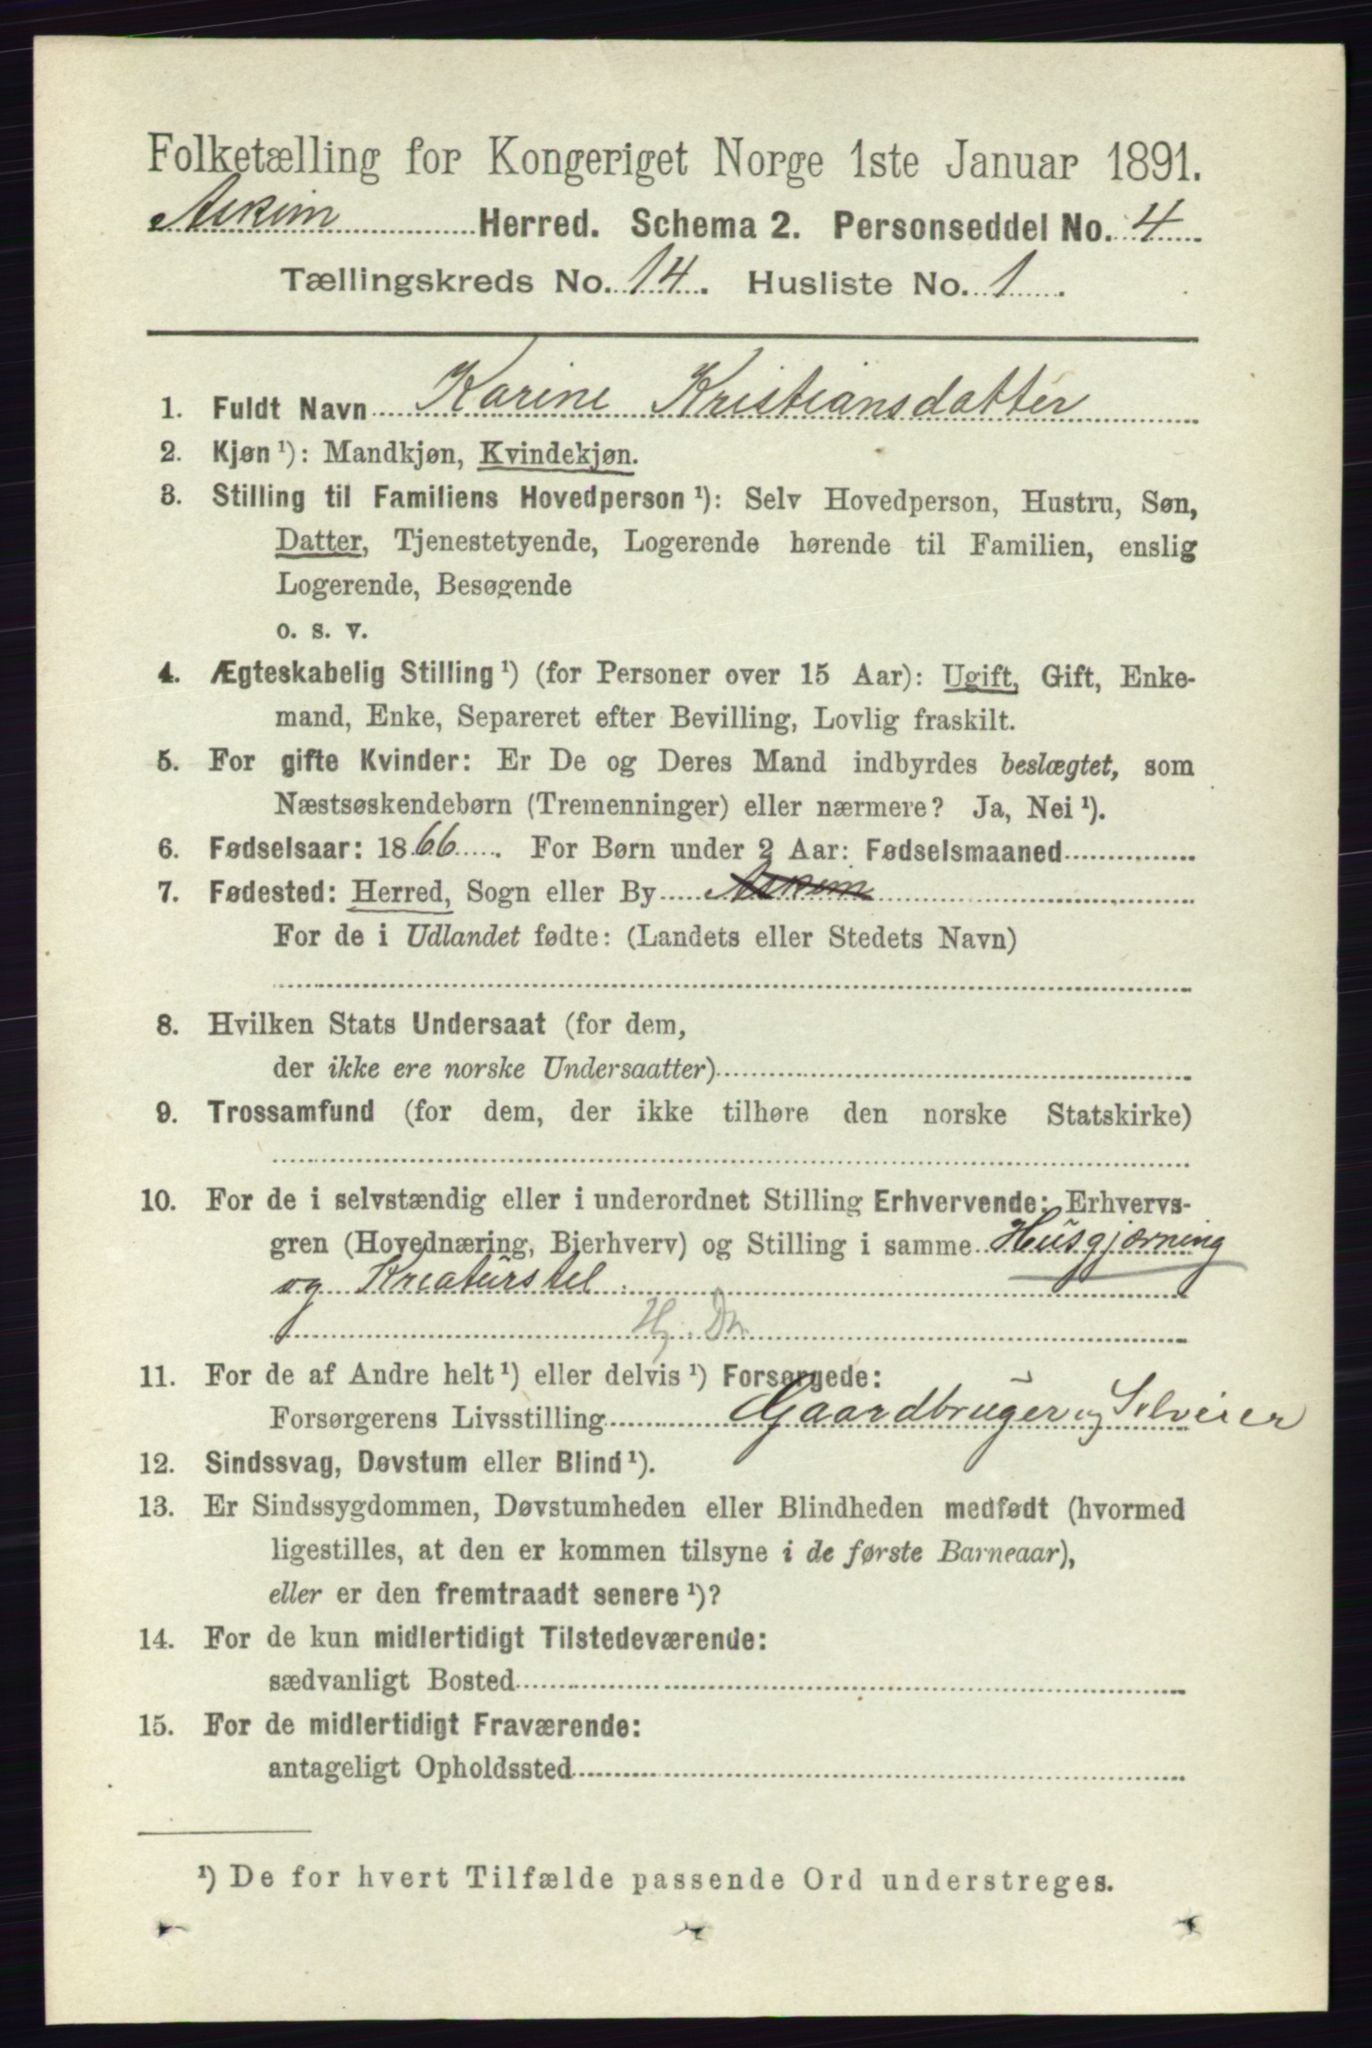 Folketælling for Kongeriget Norge 1ste Januar 1891.
Askim Herred. Schema 2. Personseddel No. 4
Tællingskreds No. 14. Husliste No. 1.
1. Fuldt Navn Karine Kristiansdatter
2. Kjøn ¹): Mandkjøn, Kvindekjøn.
3. Stilling til Familiens Hovedperson ¹): Selv Hovedperson, Hustru, Søn,
Datter, Tjenestetyende, Logerende hørende til Familien, enslig
Logerende, Besøgende
o. s. v.
4. Ægteskabelig Stilling ¹) (for Personer over 15 Aar): Ugift, Gift, Enke-
mand, Enke, Separeret efter Bevilling, Lovlig fraskilt.
5. For gifte Kvinder: Er De og Deres Mand indbyrdes beslægtet, som
Næstsøskendebørn (Tremenninger) eller nærmere? Ja, Nei ¹).
6. Fødselsaar: 1866. For Børn under 2 Aar: Fødselsmaaned
7. Fødested: Herred, Sogn eller By Askim
For de i Udlandet fødte: (Landets eller Stedets Navn)
8. Hvilken Stats Undersaat (for dem,
der ikke ere norske Undersaatter)
9. Trossamfund (for dem, der ikke tilhøre den norske Statskirke)
10. For de i selvstændig eller i underordnet Stilling Erhvervende: Erhvervs-
gren (Hovednæring, Bierhverv) og Stilling i samme Husgjørning
og Kreaturstel
Hj. Dtr
11. For de af Andre helt ¹) eller delvis ¹) Forsørgede:
Forsørgerens Livsstilling Gaardbruger og Selveier
12. Sindssvag, Døvstum eller Blind ¹).
13. Er Sindssygdommen, Døvstumheden eller Blindheden medfødt (hvormed
ligestilles, at den er kommen tilsyne i de første Barneaar),
eller er den fremtraadt senere ¹)?
14. For de kun midlertidigt Tilstedeværende:
sædvanligt Bosted
15. For de midlertidigt Fraværende:
antageligt Opholdssted
¹) De for hvert Tilfælde passende Ord understreges.